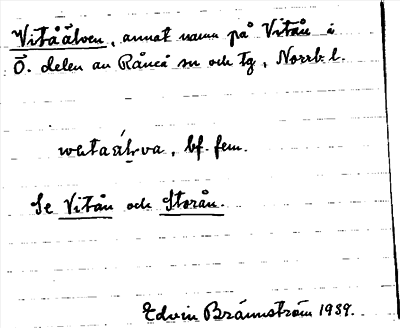 Vitåälven, annat namn på Vitån i
Ö. delen av Råneå sn och tg, Norrb. l.
bf. fem.
Se Vitån och Storån.
Edvin Brännström 1939.